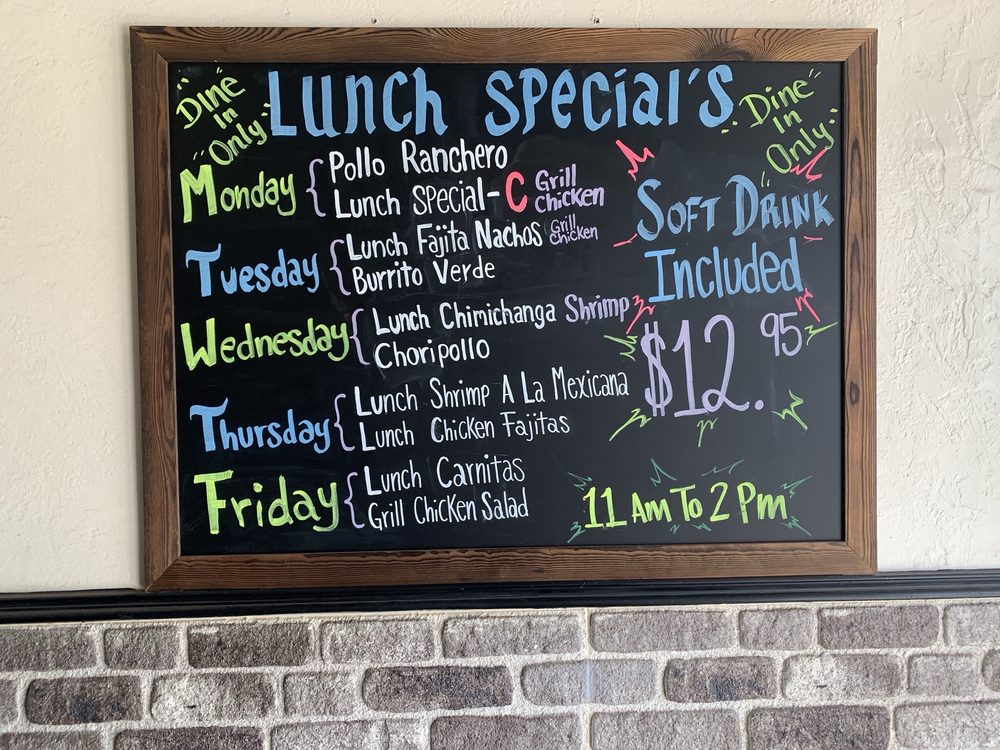 "Dine In Only"
Lunch Special's
"Dine In Only"
Monday { Pollo Ranchero
Lunch Special-C Grill Chicken
Tuesday { Lunch Fajita Nachos Grill Chicken
Burrito Verde
Wednesday { Lunch Chimichanga Shrimp
Choripollo
Thursday { Lunch Shrimp A La Mexicana
Lunch Chicken Fajitas
Friday { Lunch Carnitas
Grill Chicken Salad
Soft Drink
Included
$12.95
11 Am To 2 Pm